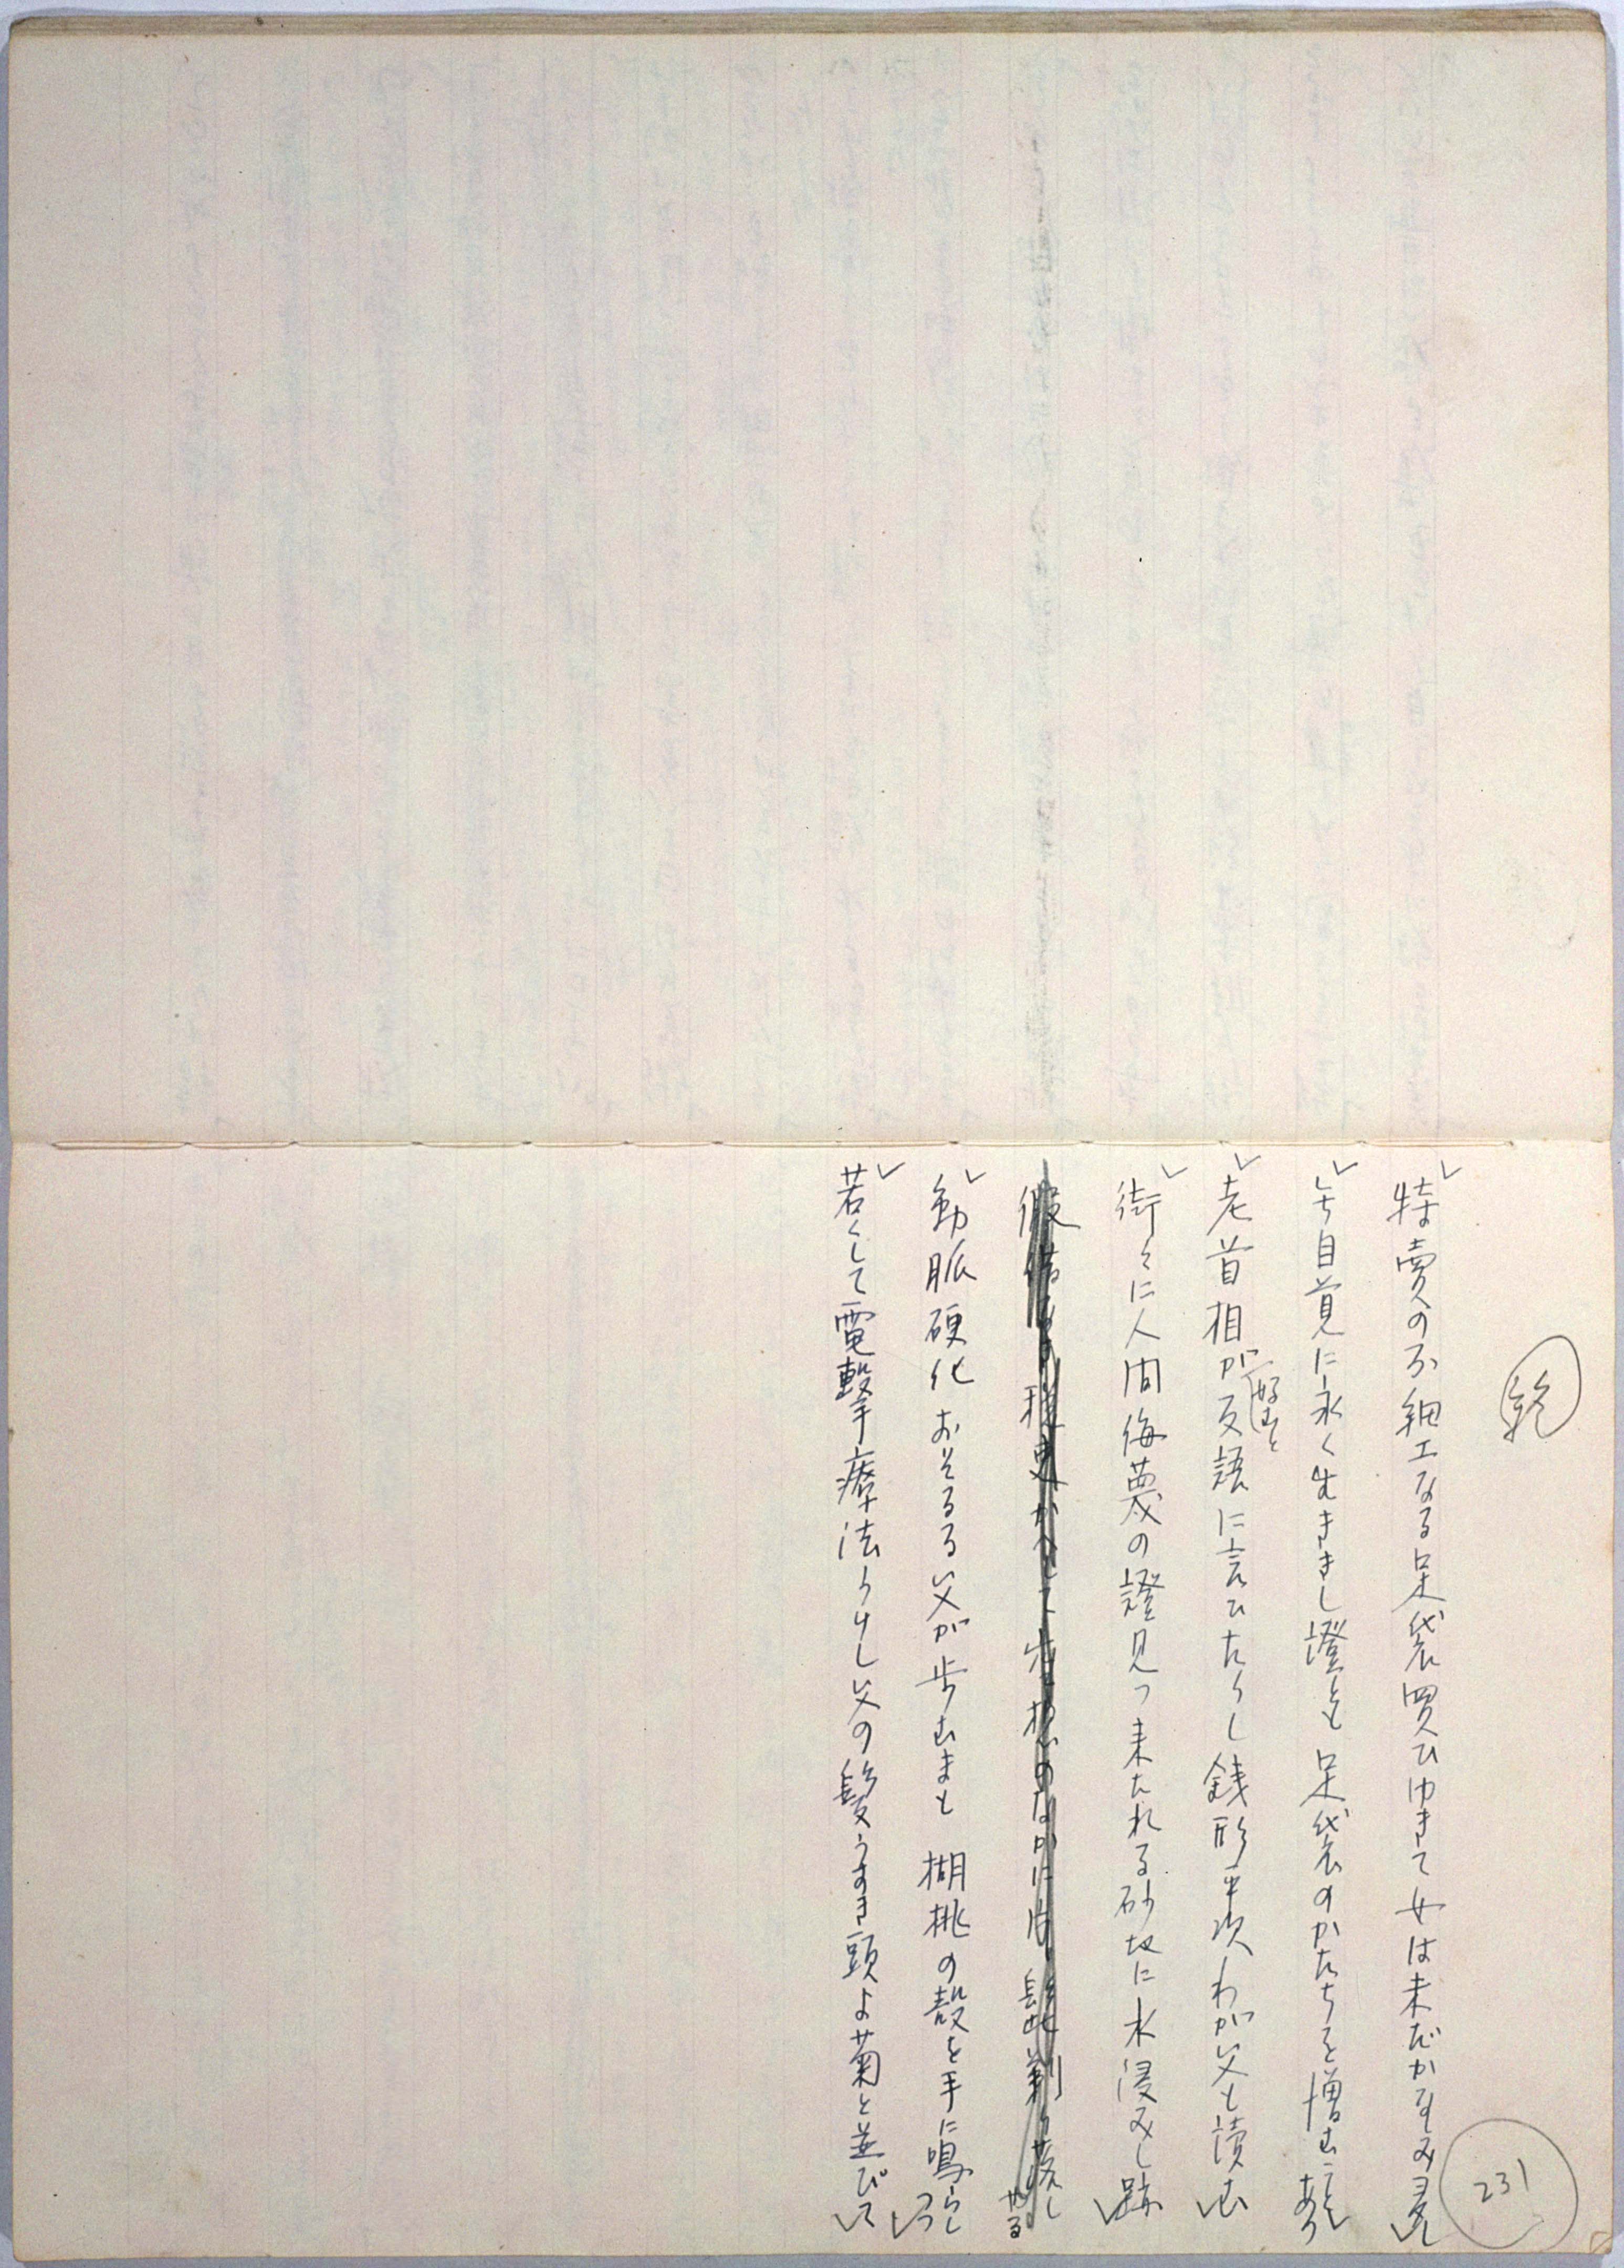 乾
特売の不細工なる足袋買ひゆきて女は未だかなしみ
自覚に永く生きし證とも足袋のかたちを憎むことあり
老首相が好むと反語に言ひたらし銭形平次わが父も讀む
街々に人間侮蔑の證見つ来たれる砂地に水浸みし跡
動脈硬化おそるる父が歩むまも胡桃の殻を手に鳴らしつつ
若くして電撃療法うけし父の髪うすき頭よ菊と並びて
231